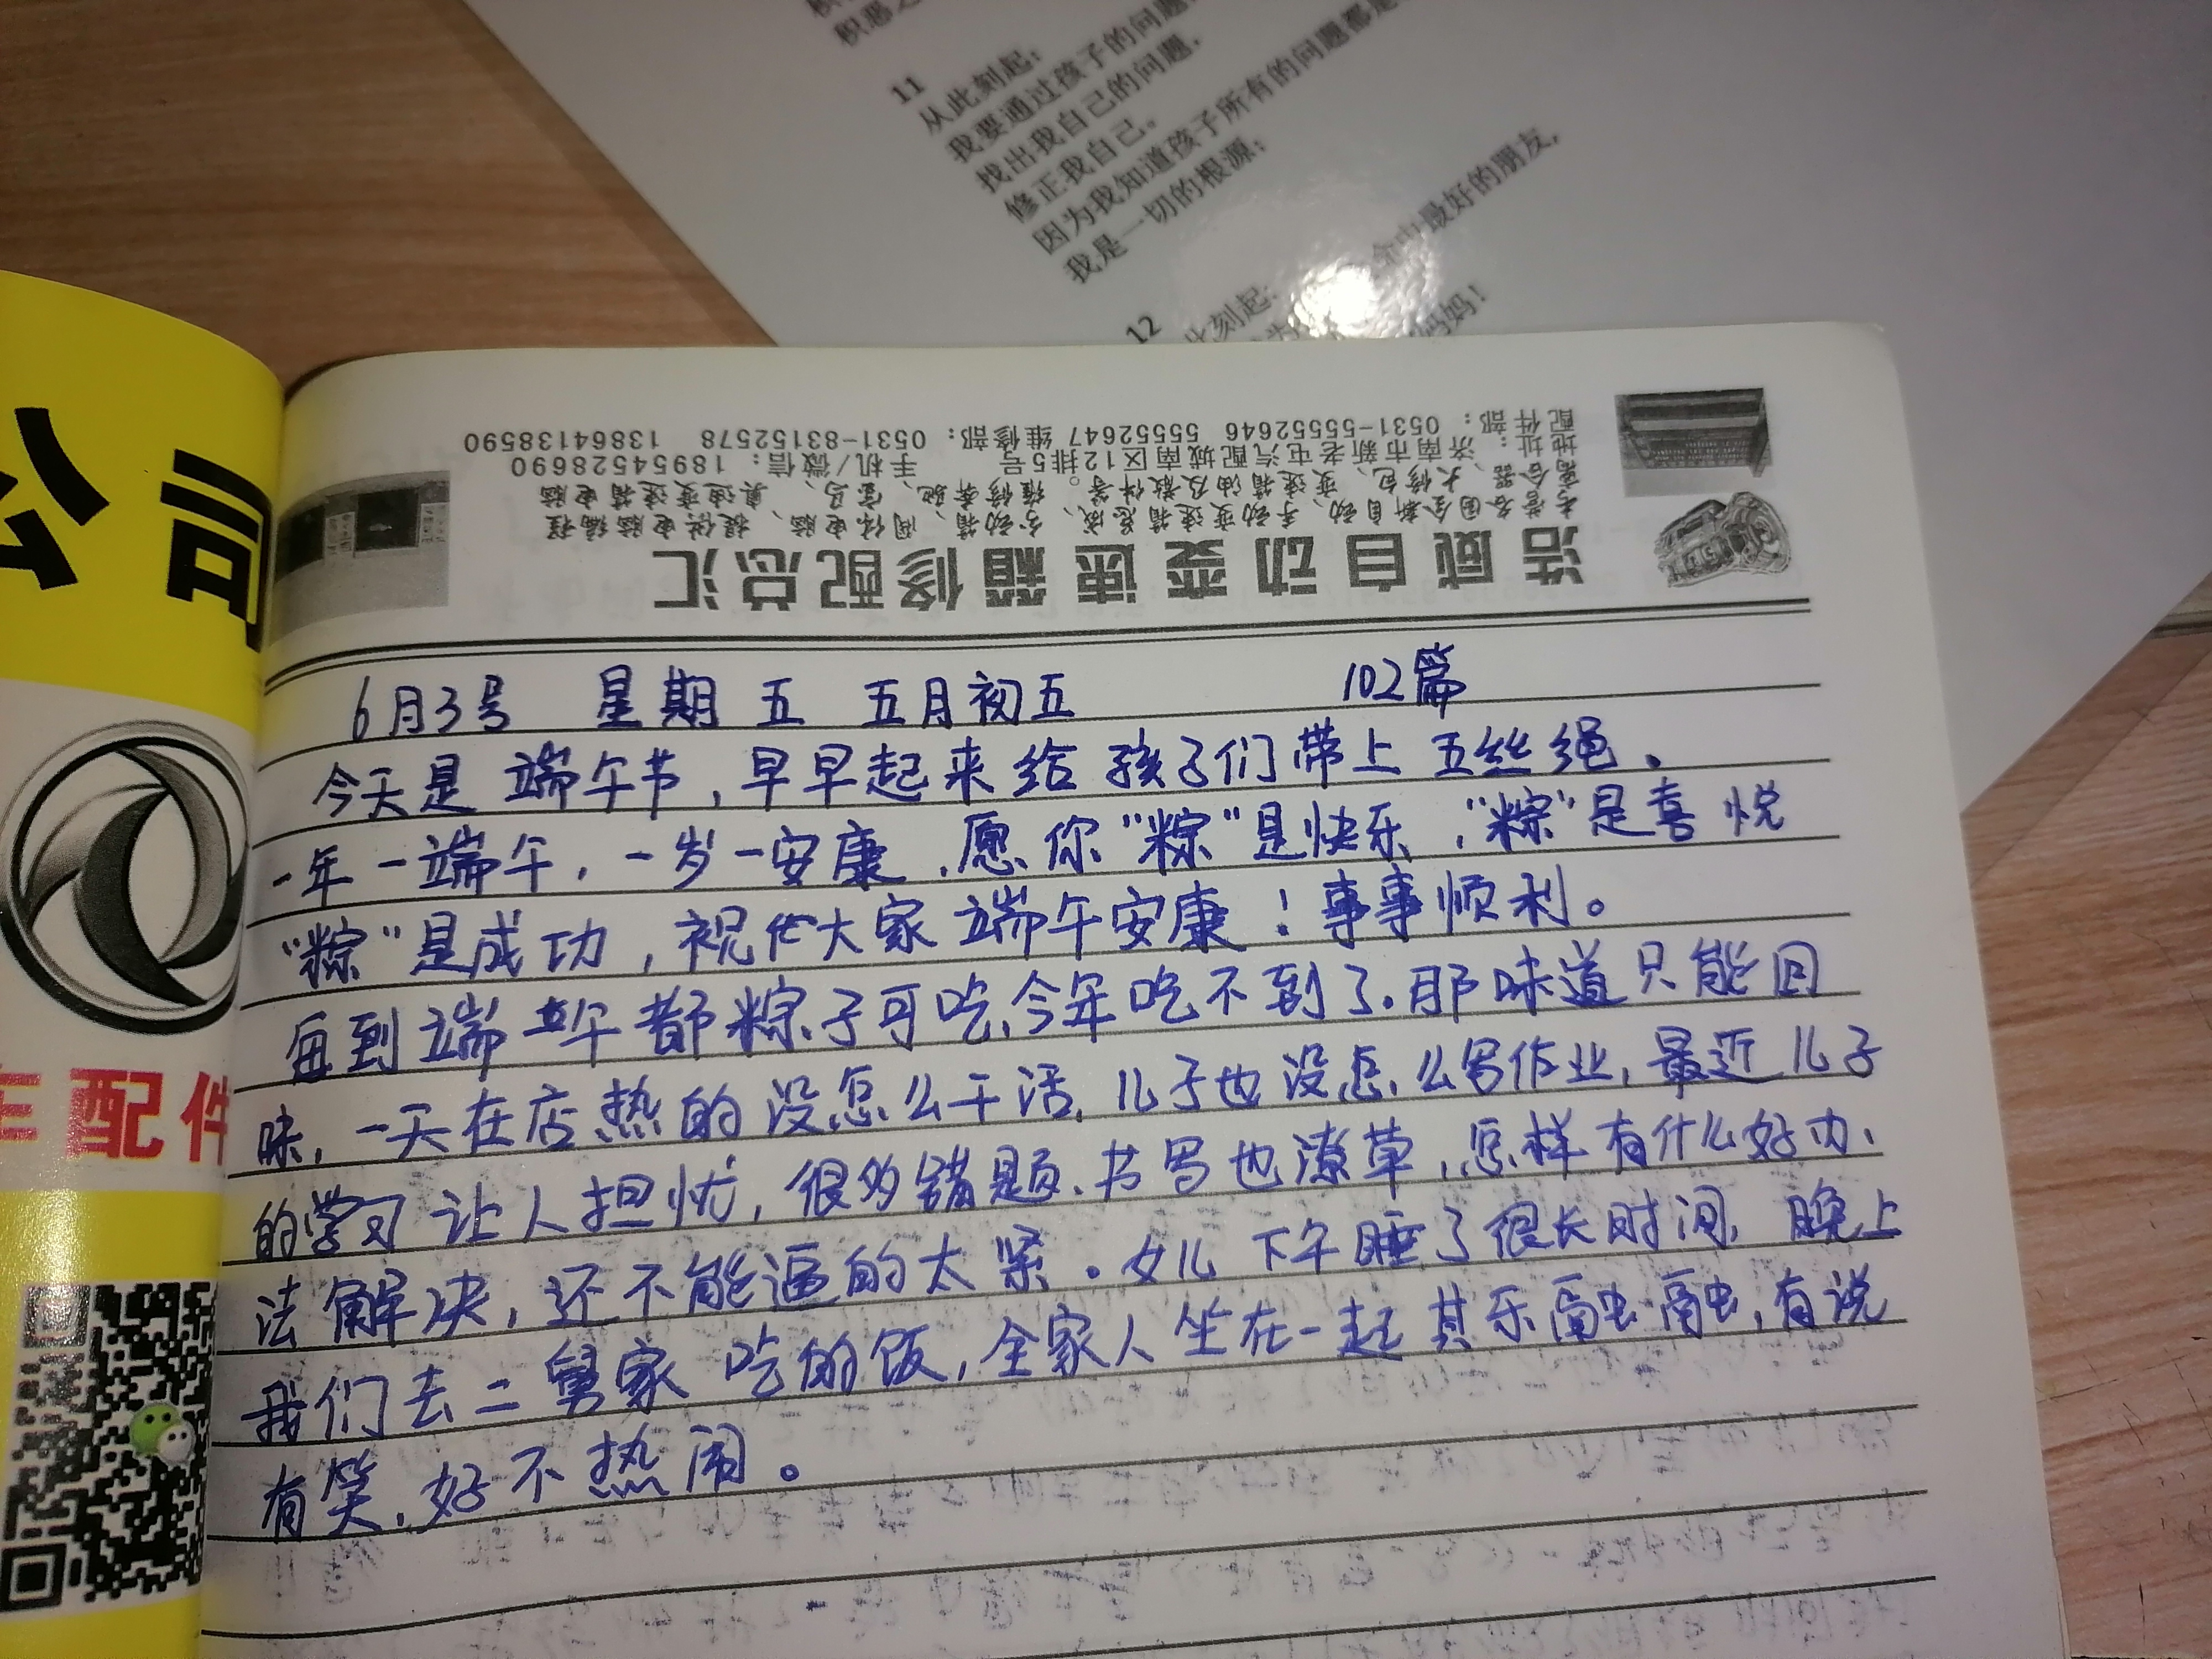 11
从此刻起：
我要通过孩子的问题
找出我自己的问题，
修正我自己。
因为我知道孩子所有的问题都是
我是一切的根源；
最好的朋友，
12
此刻起：
妈妈！
浩威自动变速箱修配总汇
地址：济南市新老屯汽配城南区12排5号 手机/微信：18954528690
配件部：0531-55552646 55552647 维修部：0531-83152578 13864138590
配件
6月3号 星期五 五月初五 102篇
今天是端午节，早早起来给孩子们带上五丝绳、
一年一端午，一岁一安康，愿你“粽”是快乐，“粽”是喜悦
“粽”是成功，祝大家端午安康！事事顺利。
每到端午都粽子可吃，今年吃不到了。那味道只能回
味，一天在店热的没怎么干活，儿子也没怎么写作业，最近儿子
的学习让人担忧，很多错题、书写也潦草，怎样有什么好办
法解决，还不能逼的太紧。女儿下午睡了很长时间，晚上
我们去二舅家吃的饭，全家人坐在一起其乐融融，有说
有笑，好不热闹。